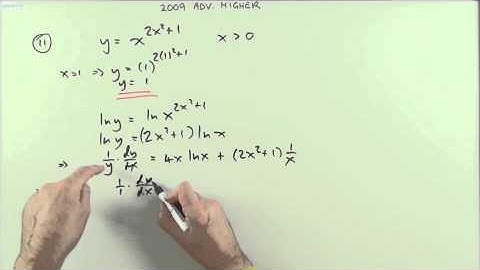 2009 ADV. HIGHER
11 y = x^{2x²+1} x > 0
x=1 ⇒ y = (1)^{2(1)²+1}
y = 1
ln y = ln x^{2x²+1}
ln y = (2x²+1) ln x
⇒ 1/y · dy/dx = 4x ln x + (2x²+1) 1/x
1/1 · dy/dx